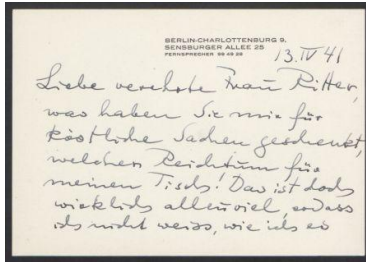 BERLIN-CHARLOTTENBURG 9,
SENSBURGER ALLEE 25
FERNSPRECHER 99 45 29
13. IV 41
Liebe verehrte Frau Ritter,
was haben Sie mir für
köstliche Sachen geschenkt,
welchen Reichtum für
meinen Tisch! Das ist doch
wirklich allzuviel, sodass
ich nicht weiss, wie ich es